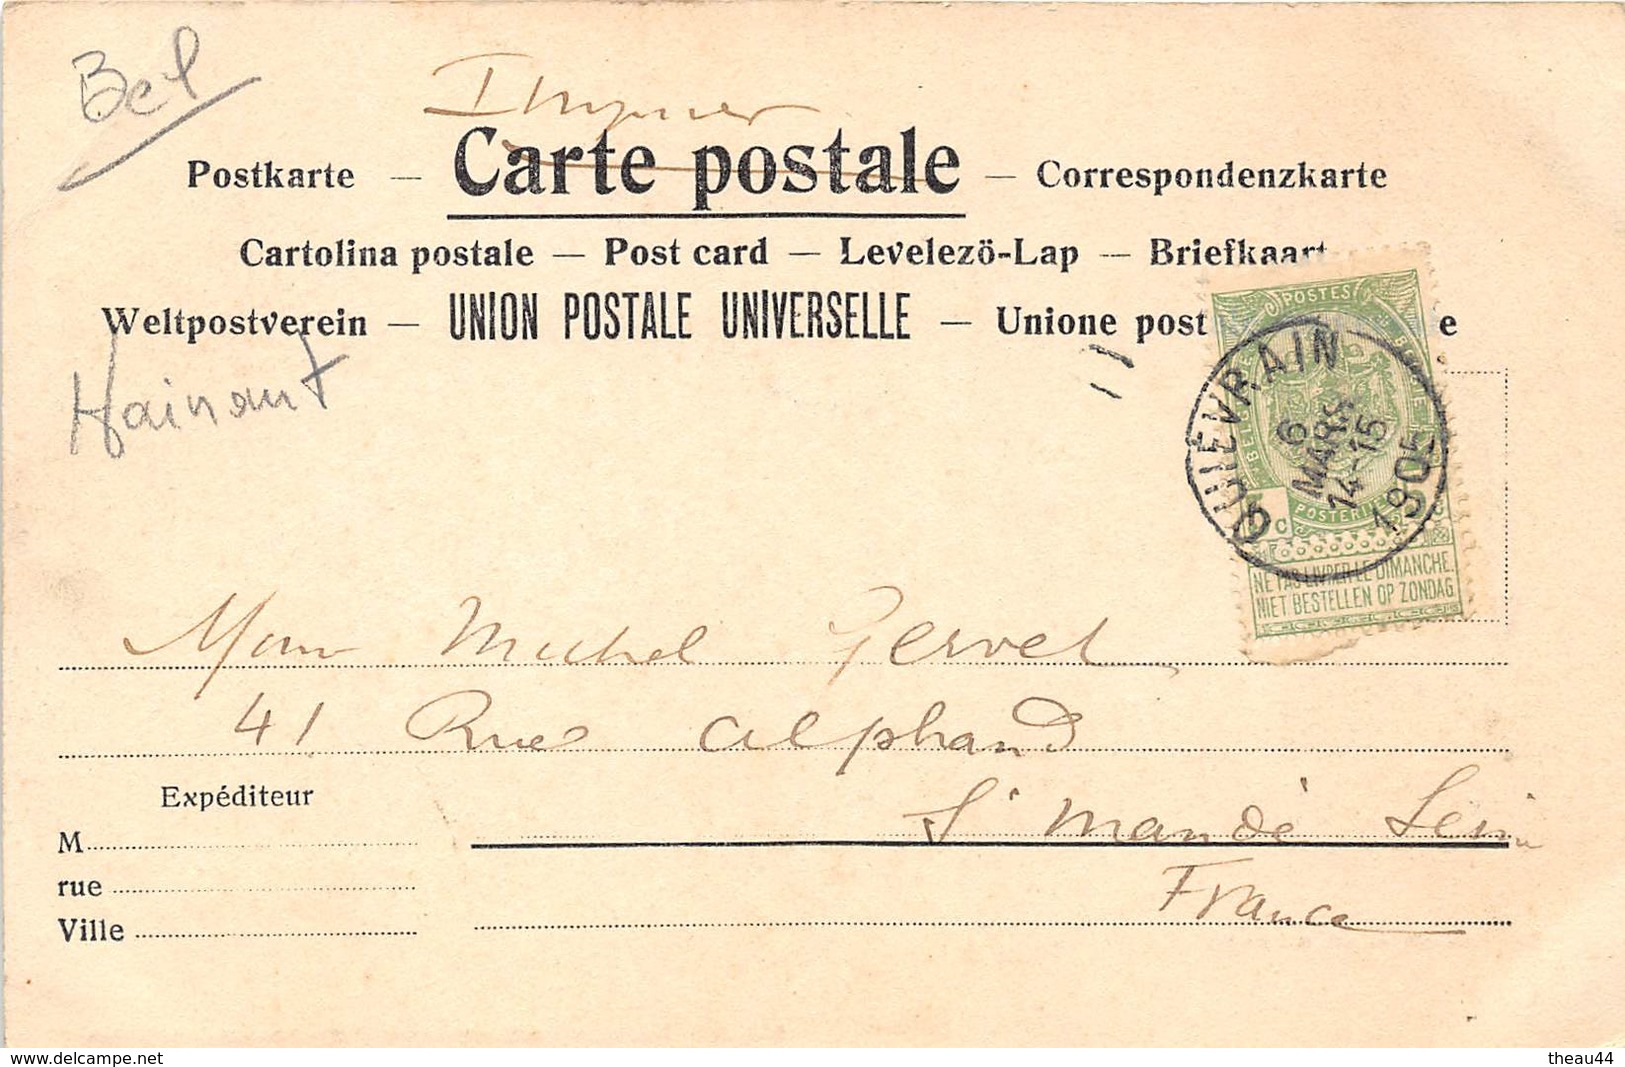 Bel
Postkarte — Carte postale — Correspondenzkarte
Cartolina postale — Post card — Levelezö-Lap — Briefkaart
Weltpostverein — UNION POSTALE UNIVERSELLE — Unione post e
Hainaut
POSTES
QUIEVRAIN
6
MARS
14-15
1905
NE PAS LIVRER LE DIMANCHE
NIET BESTELLEN OP ZONDAG
Michel Gervet
41 Rue Alphand
Expéditeur
St Mandé Seine
M
rue
France
Ville
www.delcampe.net
theau44